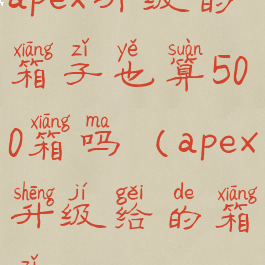 apex升级的
xiāng zǐ yě suàn
箱子也算50
xiāng ma
0箱吗（apex
shēng jí gěi de xiāng
升级给的箱
zǐ